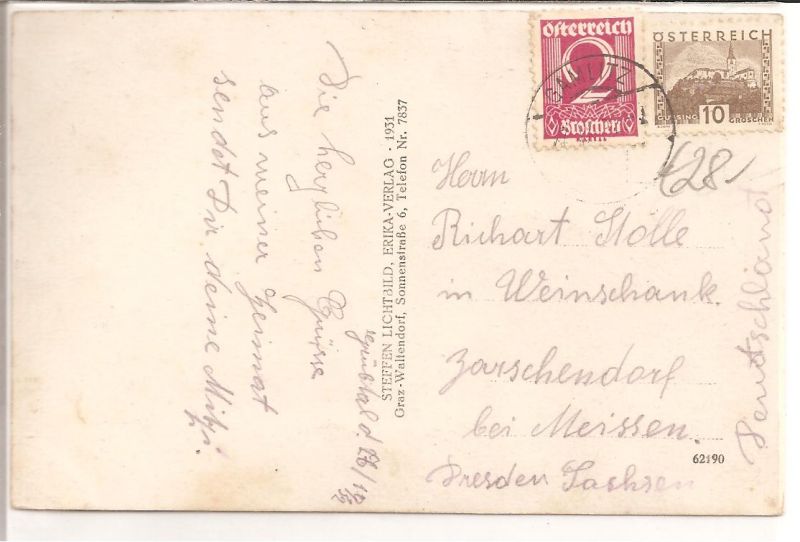 Österreich
2
Groschen
ÖSTERREICH
GÜSSING 10 GROSCHEN
GAMLITZ
428
Die herzlichen Grüsse
aus meiner Heimat
sendet Dir deine Mitzi.
d. 26/12
32
STEFFEN LICHTBILD, ERIKA-VERLAG · 1931
Graz-Waltendorf, Sonnenstraße 6, Telefon Nr. 7837
Herrn
Richart Stolle
in Weinschank.
Zarschendorf
bei Meissen.
Dresden Sachsen
Deutschland
62190